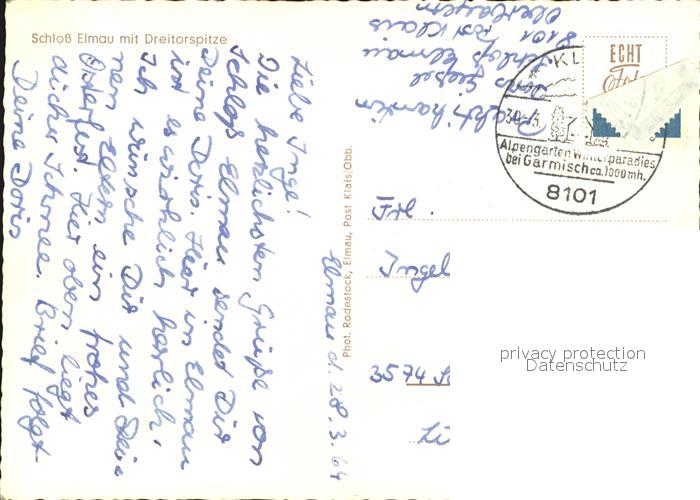 Schloß Elmau mit Dreitorspitze
Elmau d. 28.3.64
Liebe Inge!
Die herzlichsten Grüße von
Schloß Elmau sendet Dir
Deine Doris. Hier in Elmau
ist es wirklich herrlich,
Ich wünsche Dir und Dei-
nen Eltern ein frohes
Osterfest. Hier oben liegt
dicker Schnee. Brief folgt
Deine Doris
Phot. Rodestock, Elmau, Post Klais/Obb.
Doris
Schloß Elmau
8101 Post Klais
Oberbayern
ECHT
Foto
KL
30.-3.
Alpengarten Winterparadies
bei Garmisch ca. 1000 mh.
8101
Frl.
3574
privacy protection
Datenschutz